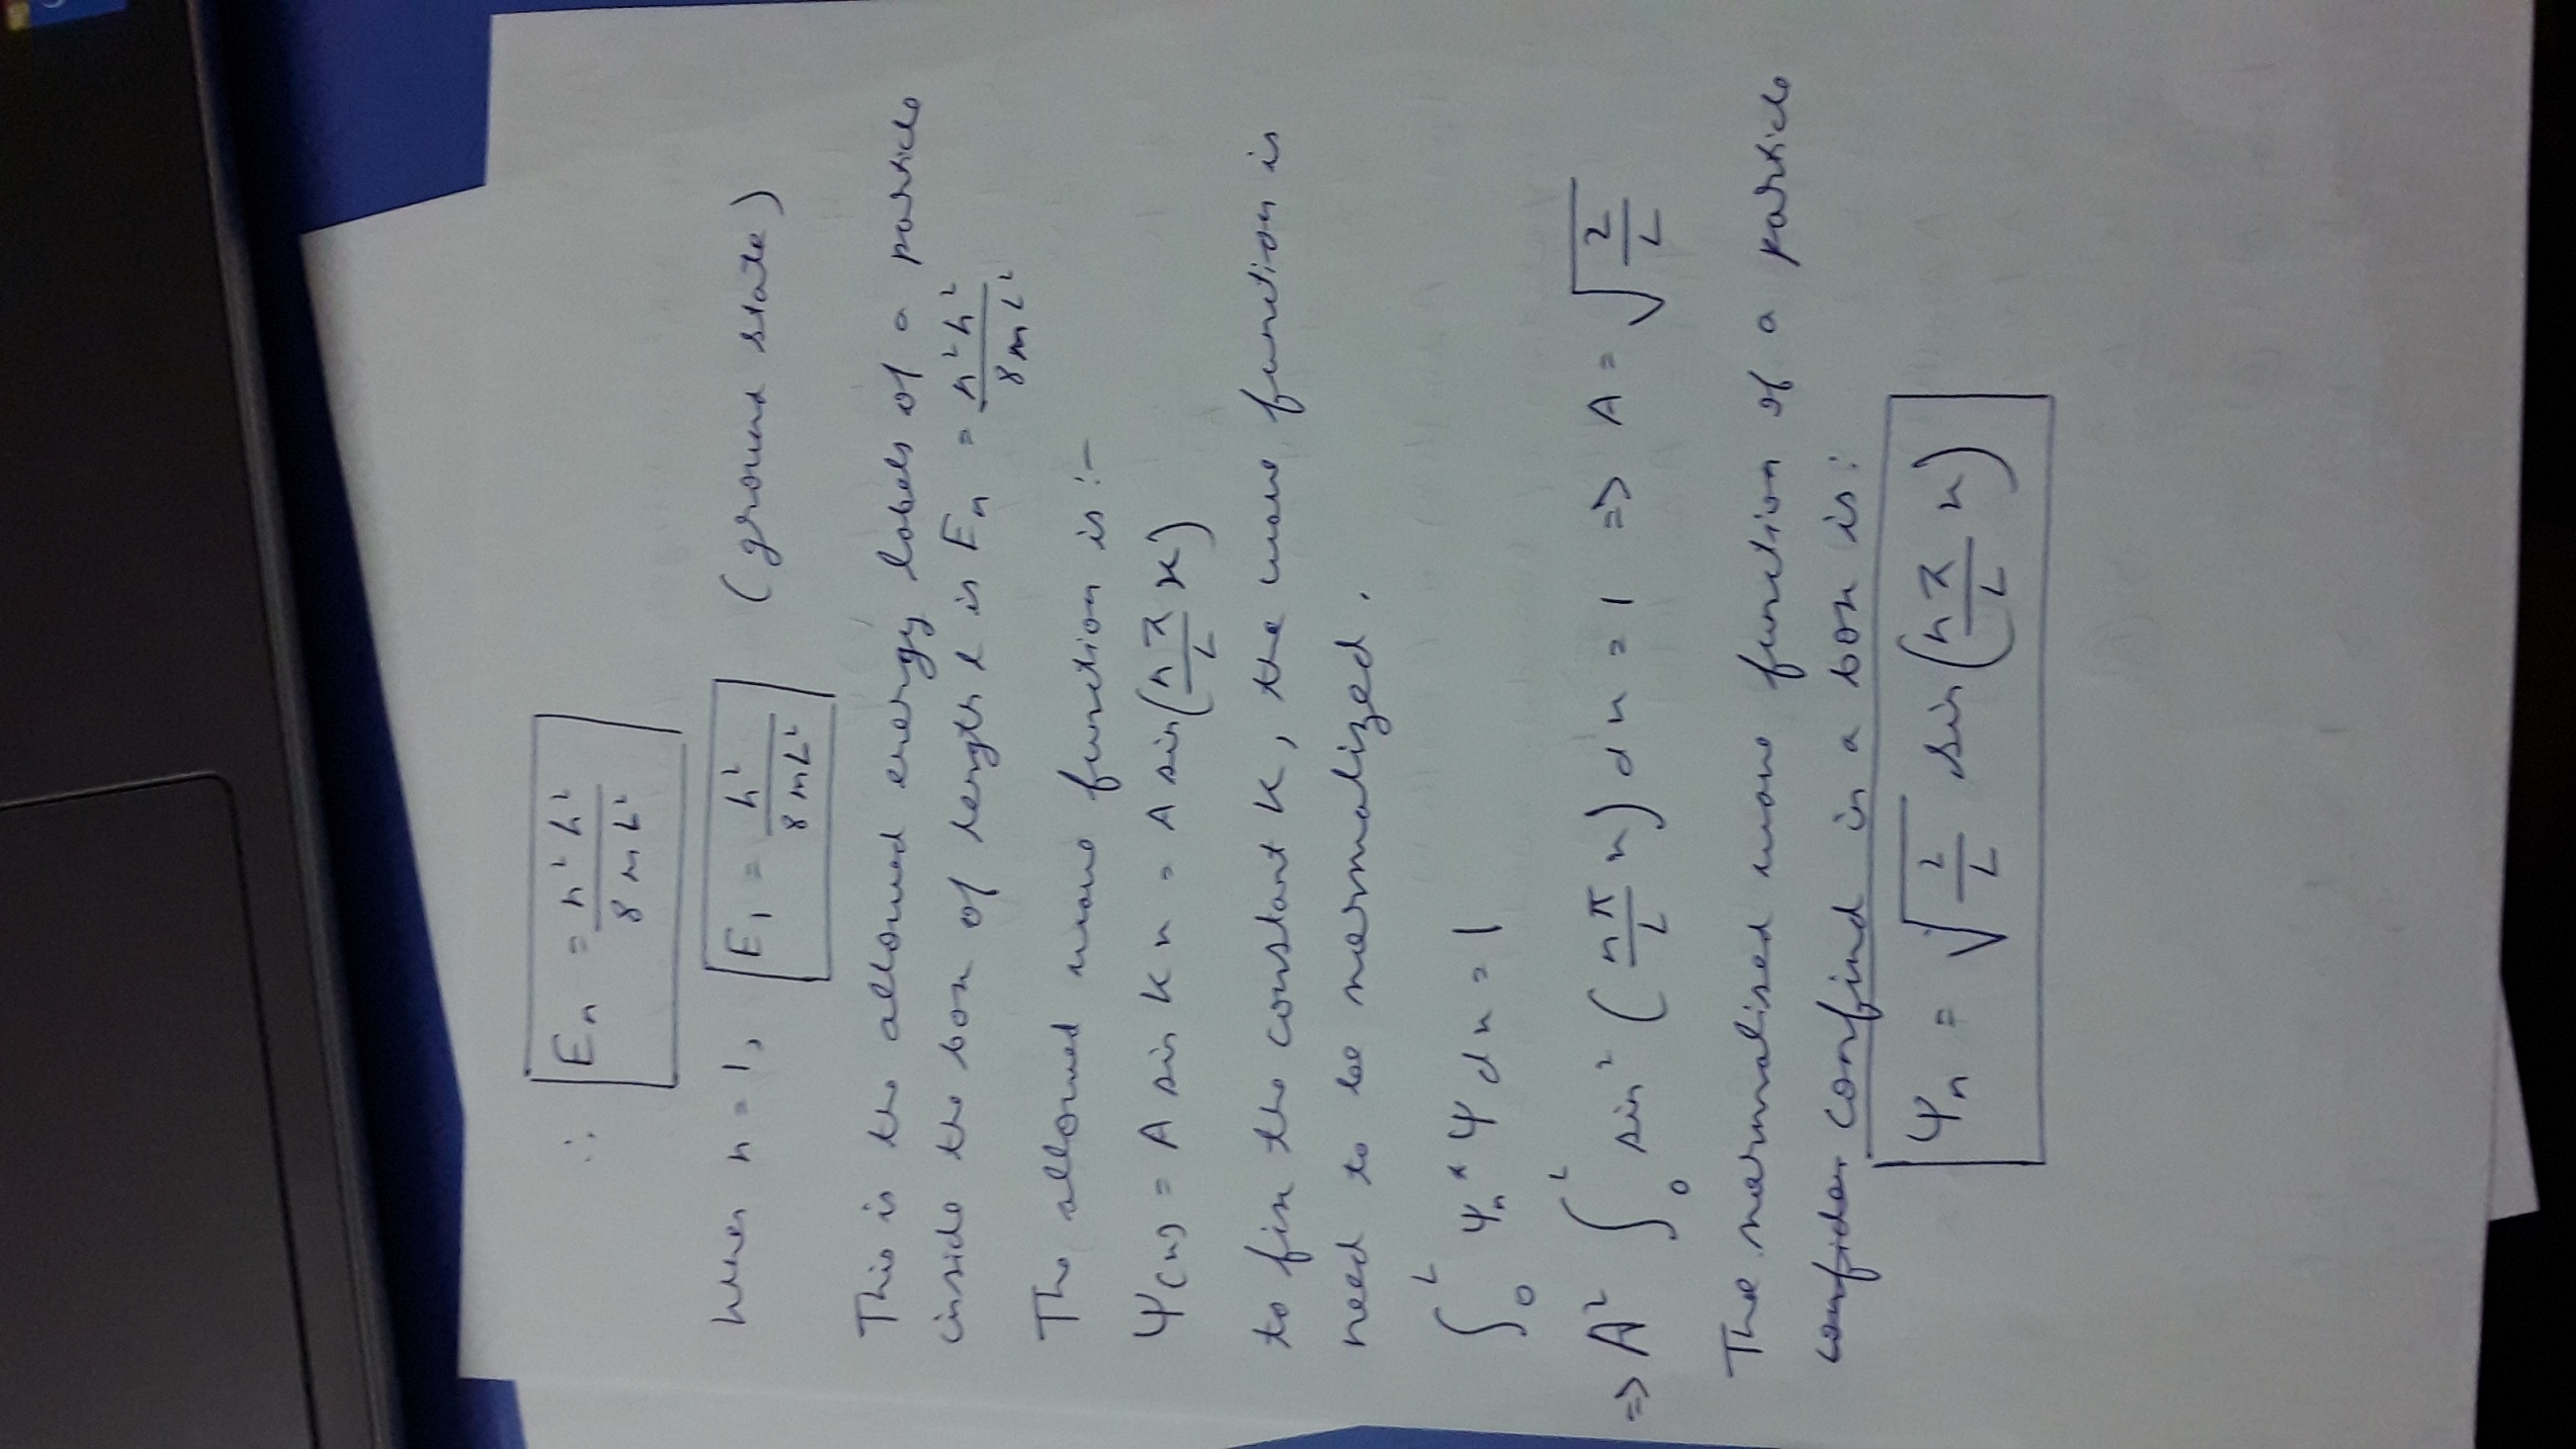 ∴ Eₙ = n²h² / 8mL²
When n = 1, E₁ = h² / 8mL² (ground state)
This is the allowed energy labels of a particle
inside the box of length L is Eₙ = n²h² / 8mL²
The allowed wave function is :-
Ψ(x) = A sin Kx = A sin(nπ/L x)
to fix the constant K, the wave function is
need to be normalized.
∫₀ᴸ Ψₙ* Ψ dx = 1
⇒ A² ∫₀ᴸ sin² (nπ/L x) dx = 1 ⇒ A = √(2/L)
The normalised wave function of a particle
confined in a box is:
Ψₙ = √(2/L) sin(nπ/L x)